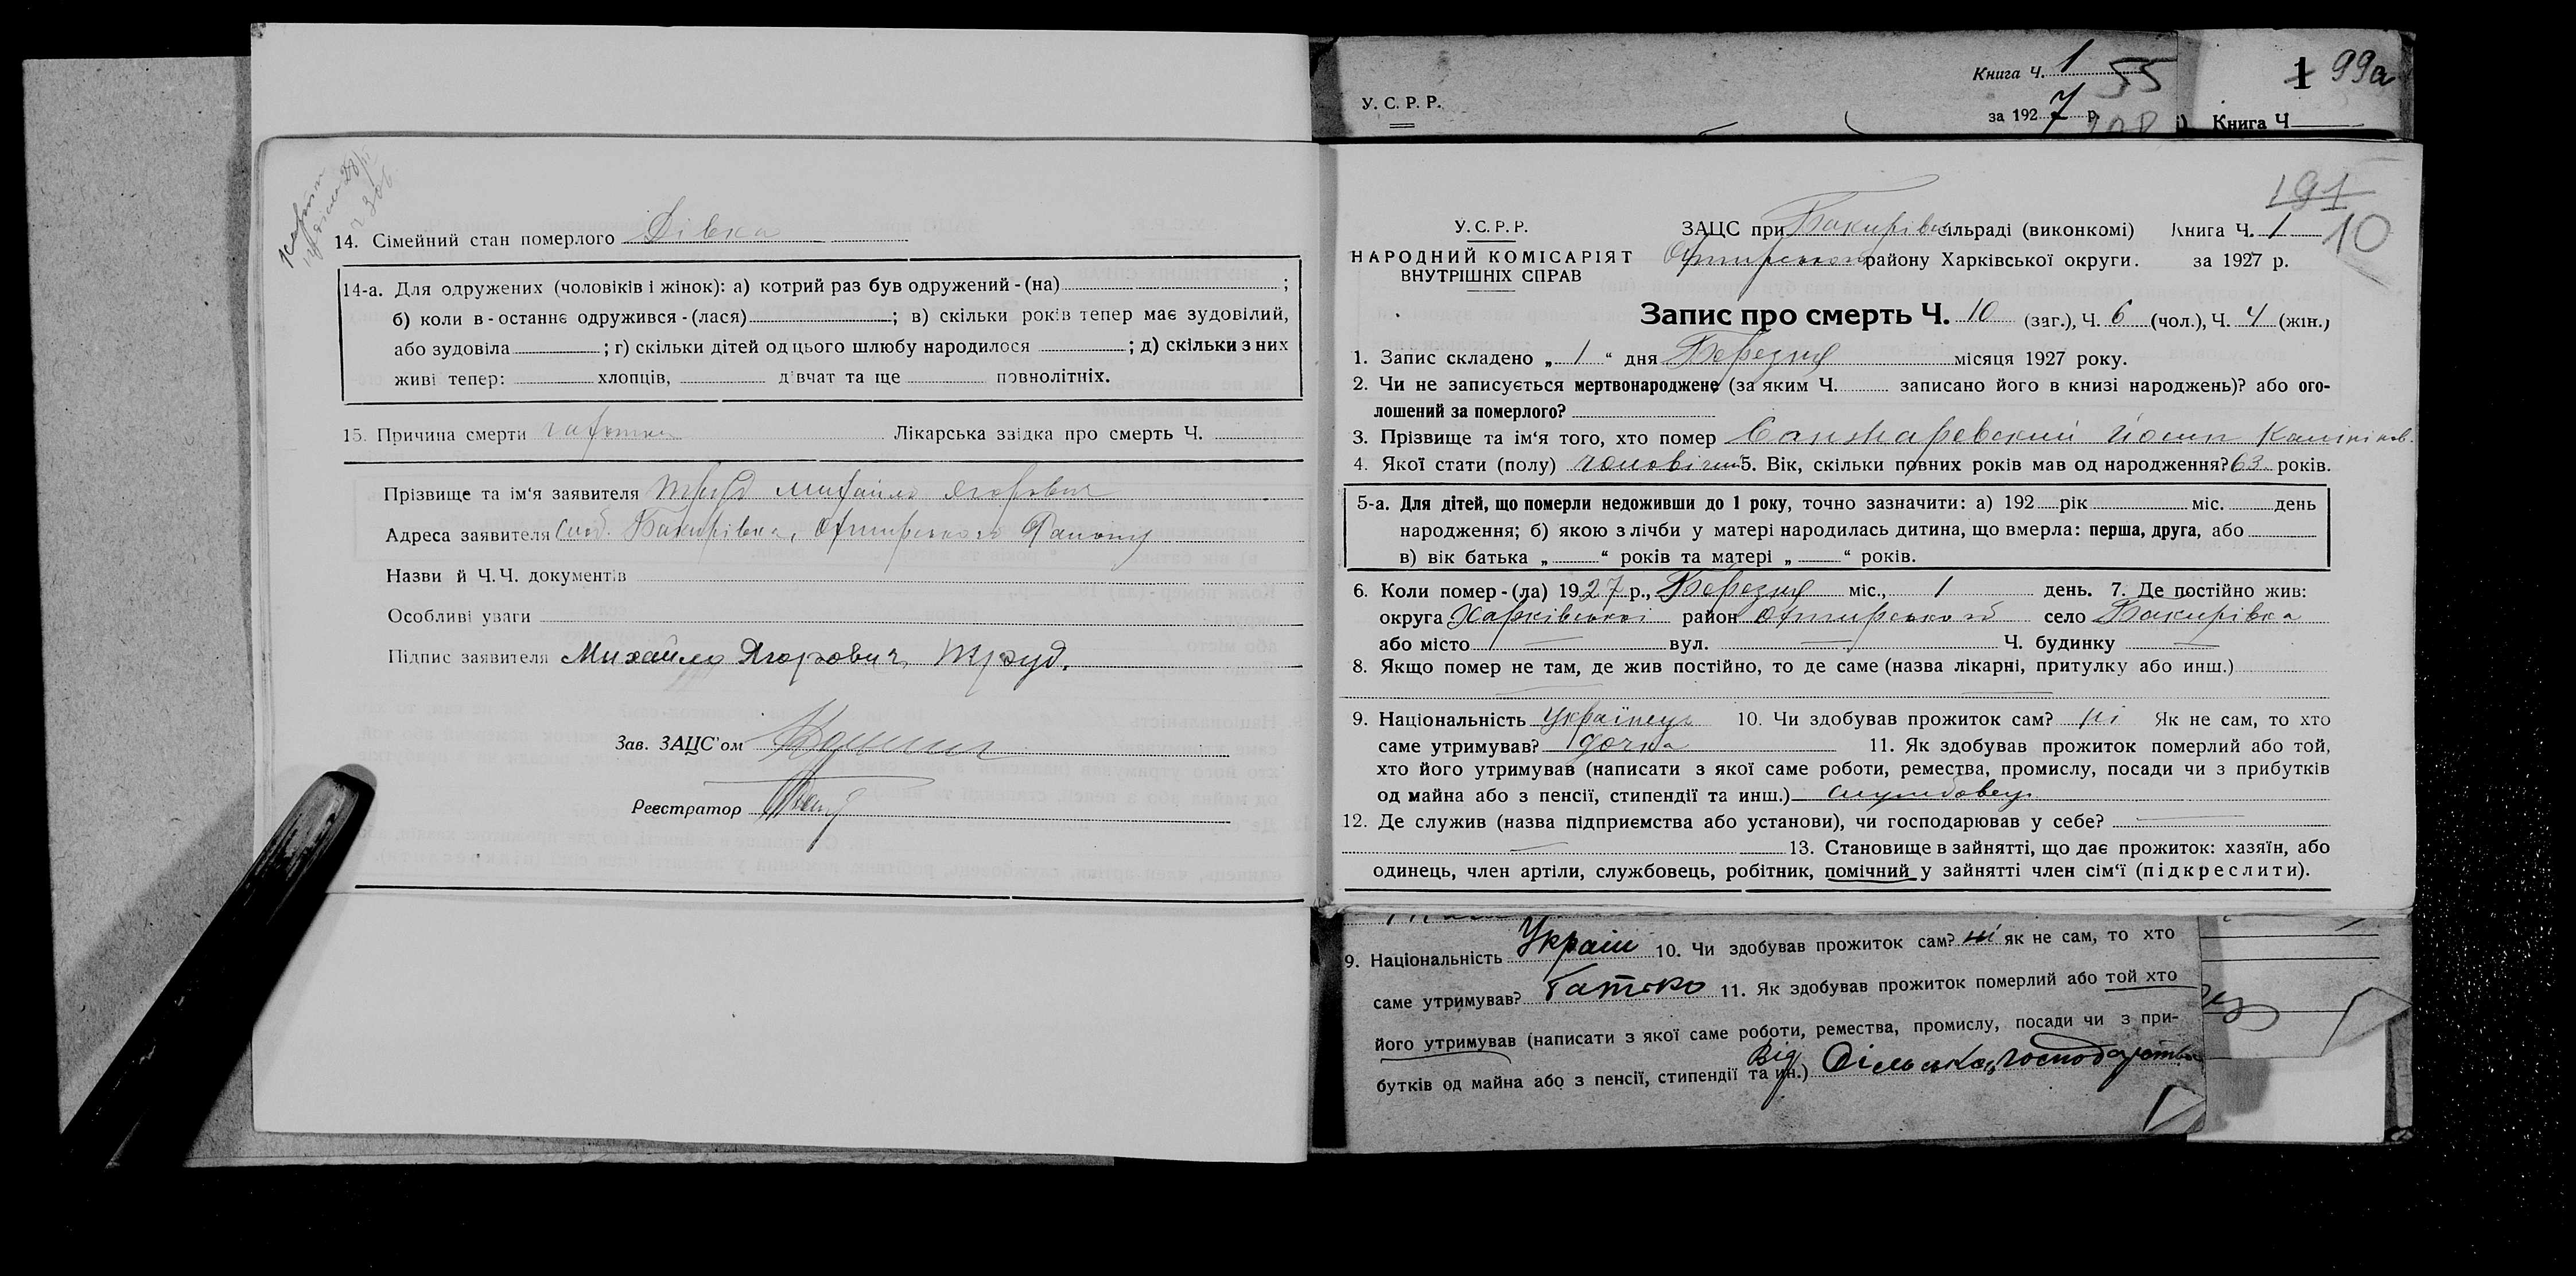 14. Сімейний стан померлого Дівка
14-а. Для одружених (чоловіків і жінок): а) котрий раз був одружений - (на) ;
б) коли в - останнє одружився - (лася) ; в) скільки років тепер має зудовілий,
або зудовіла ; г) скільки дітей од цього шлюбу народилося ; д) скільки з них
живі тепер: хлопців, дівчат та ще повнолітніх.
15. Причина смерти Лікарська звідка про смерть Ч.
Прізвище та ім'я заявителя Труд Михайло Ягорович
Адреса заявителя Слоб. Бакирівка, Охтирського Району
Назви й Ч. Ч. документів
Особливі уваги
Підпис заявителя Михайло Ягорович Труд.
Зав. ЗАЦС'ом
Реєстратор
У. С. Р. Р.
Книга Ч. 1 55
за 1927 р.
1 99а
Книга Ч
191
10
У. С. Р. Р.
НАРОДНИЙ КОМІСАРІЯТ
ВНУТРІШНІХ СПРАВ
ЗАЦС при Бакирівс. сільраді (виконкомі) Книга Ч. 1
Охтирського району Харківської округи. за 1927 р.
Запис про смерть Ч. 10 (заг.), Ч. 6 (чол.), Ч. 4 (жін.)
1. Запис складено „ 1 “ дня Березня місяця 1927 року.
2. Чи не записується мертвонароджене (за яким Ч. записано його в книзі народжень)? або ого-
лошений за померлого?
3. Прізвище та ім'я того, хто помер Санжаревский Йосип
4. Якої стати (полу) чоловічий 5. Вік, скільки повних років мав од народження? 63 років.
5-а. Для дітей, що померли недоживши до 1 року, точно зазначити: а) 192 рік міс. день
народження; б) якою з лічби у матері народилась дитина, що вмерла: перша, друга, або
в) вік батька „ “ років та матері „ “ років.
6. Коли помер - (ла) 1927 р., Березня міс., 1 день. 7. Де постійно жив:
округа Харківської район Охтирський село Бакирівка
або місто — вул. — Ч. будинку —
8. Якщо помер не там, де жив постійно, то де саме (назва лікарні, притулку або инш.)
9. Національність Українець 10. Чи здобував прожиток сам? Ні Як не сам, то хто
саме утримував? дочка 11. Як здобував прожиток померлий або той,
хто його утримував (написати з якої саме роботи, ремества, промислу, посади чи з прибутків
од майна або з пенсії, стипендії та инш.) служbовець
12. Де служив (назва підприємства або установи), чи господарював у себе? —
— 13. Становище в зайнятті, що дає прожиток: хазяїн, або
одинець, член артіли, службовець, робітник, помічний у зайнятті член сім'ї (підкреслити).
9. Національність Україн 10. Чи здобував прожиток сам? ні як не сам, то хто
саме утримував? Батько 11. Як здобував прожиток померлий або той хто
його утримував (написати з якої саме роботи, ремества, промислу, посади чи з при-
бутків од майна або з пенсії, стипендії та ин.) Від Сільська господарства